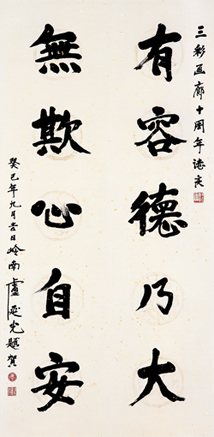 三彩画廊十周年誌庆
有容德乃大
無欺心自安
癸巳年九月吉日岭南盧延光题贺